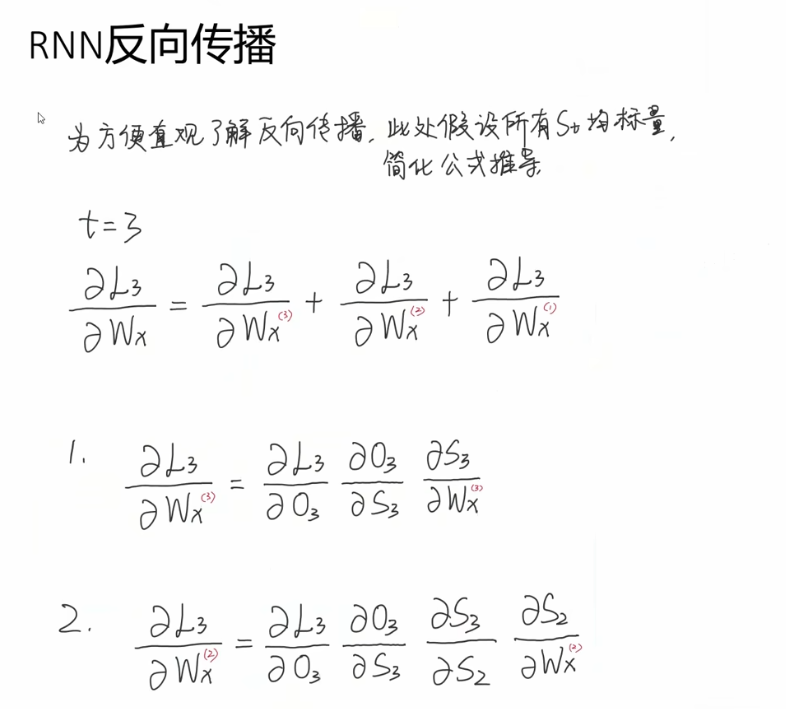 RNN反向传播
为方便直观了解反向传播，此处假设所有St均标量，
简化公式推导
t=3
∂L₃/∂Wx = ∂L₃/∂Wx⁽³⁾ + ∂L₃/∂Wx⁽²⁾ + ∂L₃/∂Wx⁽¹⁾
1. ∂L₃/∂Wx⁽³⁾ = ∂L₃/∂O₃ ∂O₃/∂S₃ ∂S₃/∂Wx⁽³⁾
2. ∂L₃/∂Wx⁽²⁾ = ∂L₃/∂O₃ ∂O₃/∂S₃ ∂S₃/∂S₂ ∂S₂/∂Wx⁽²⁾